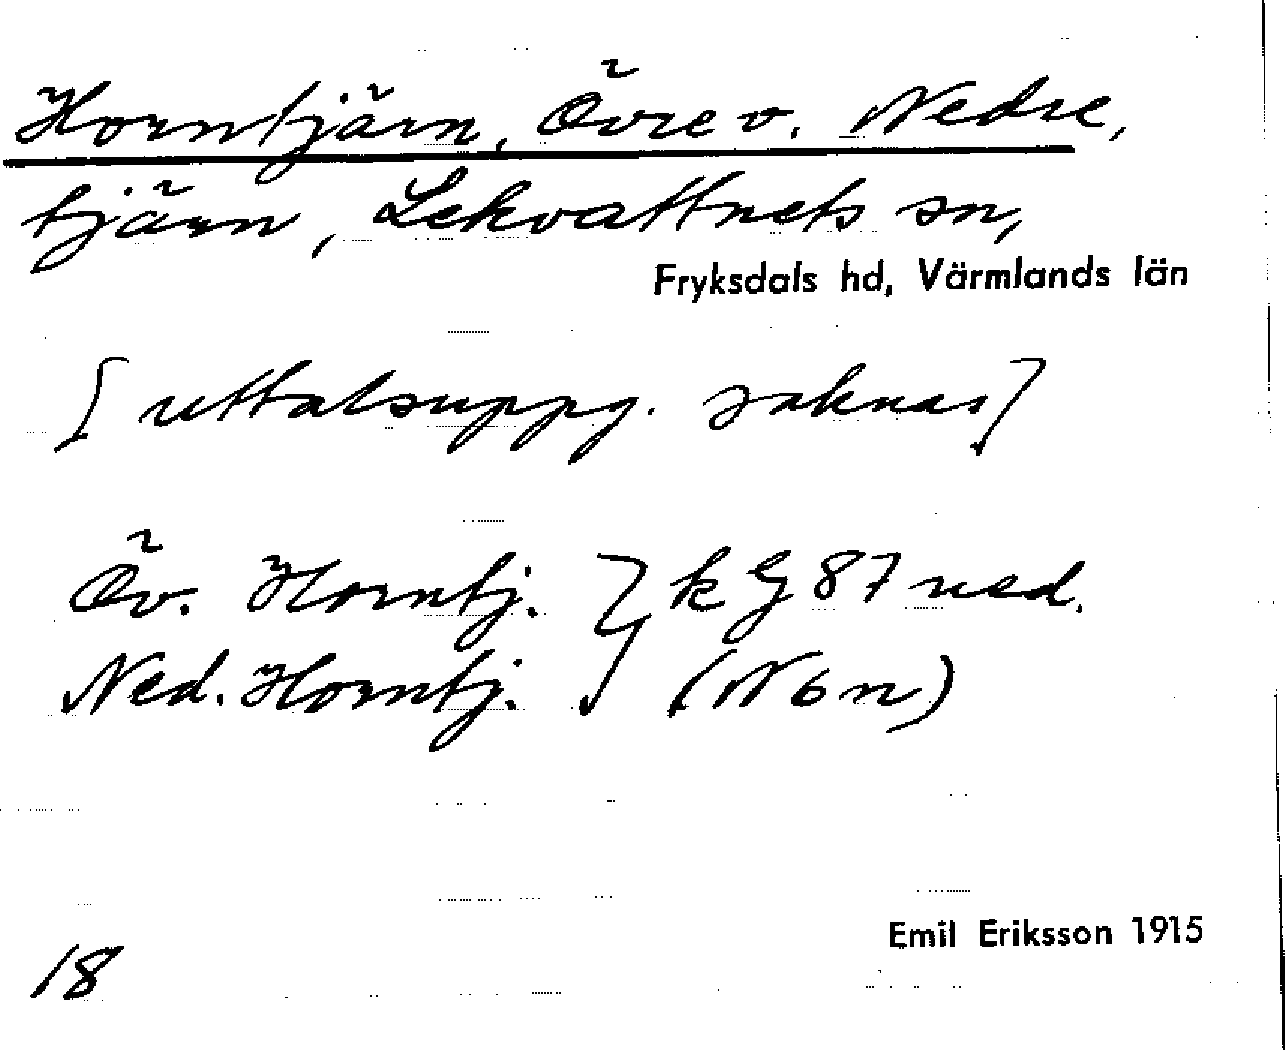 Horntjärn, Övre o. Nedre,
tjärn, Lekvattnets sn,
Fryksdals hd, Värmlands län
[uttalsuppg. saknas]
Öv. Horntj. } k G 87 ned.
Ned. Horntj. } (N ö n)
Emil Eriksson 1915
18